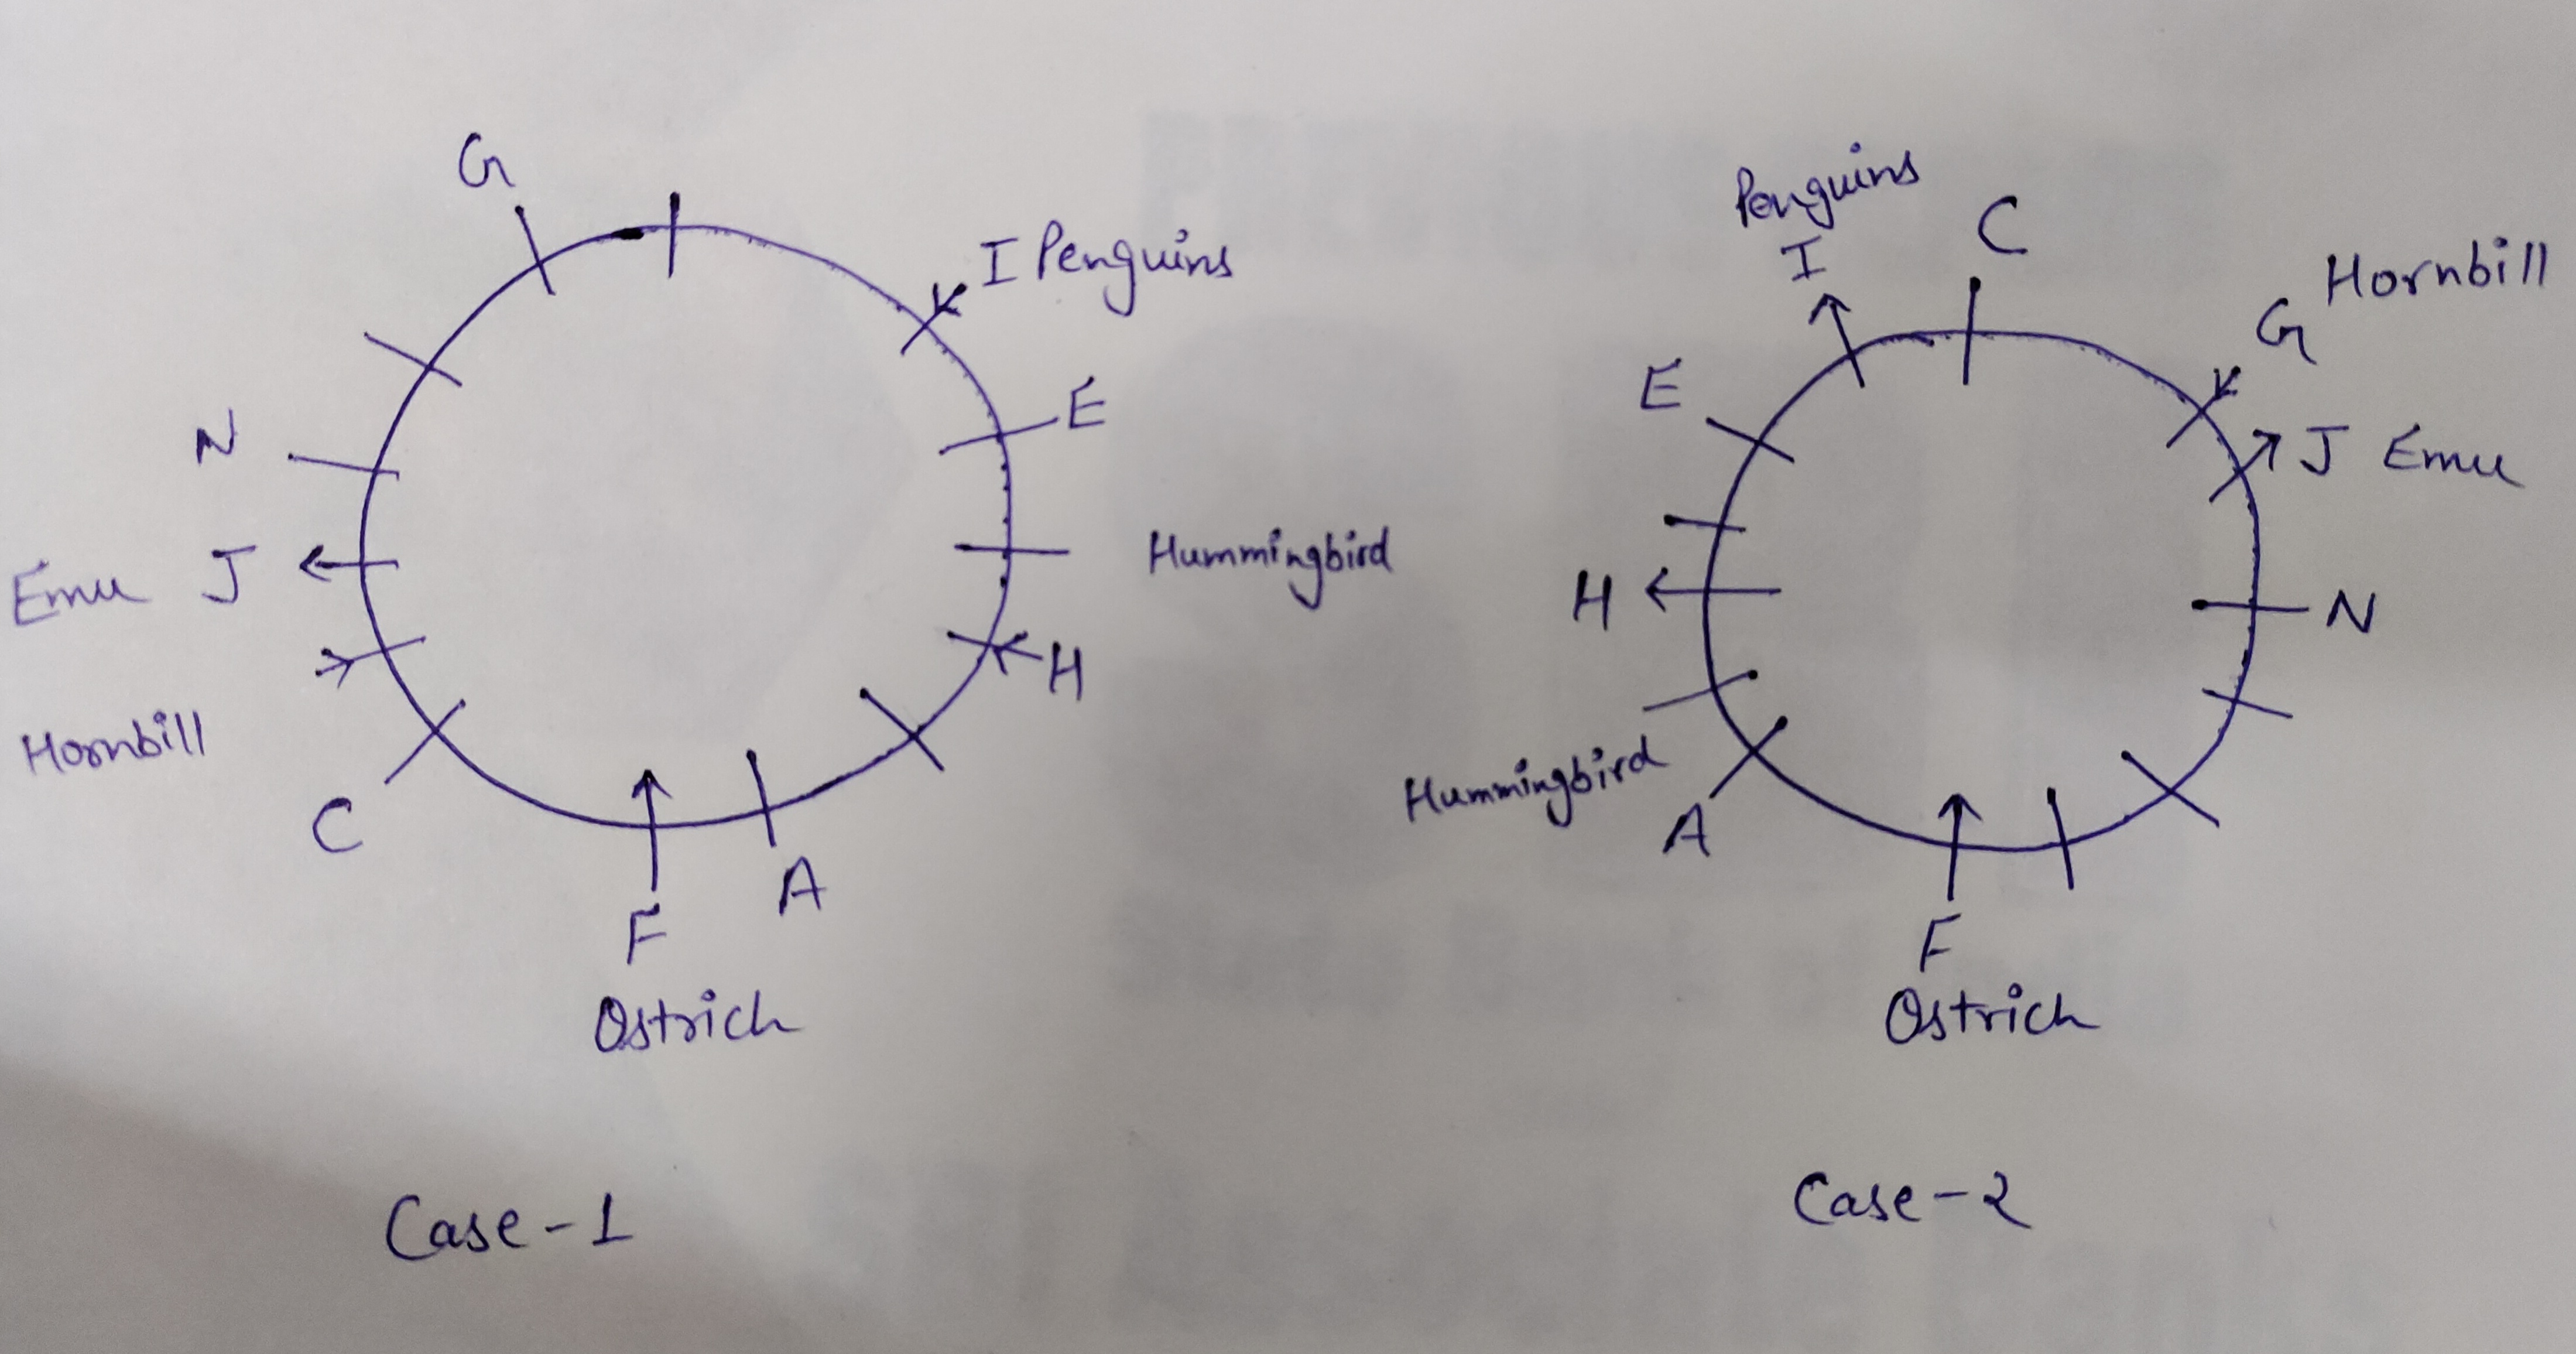 G
I Penguins
E
N
Hummingbird
Emu J
H
Hornbill
C
A
F
Ostrich
Case-1
Penguins
I
C
Hornbill
G
E
J Emu
H
N
Hummingbird
A
F
Ostrich
Case-2